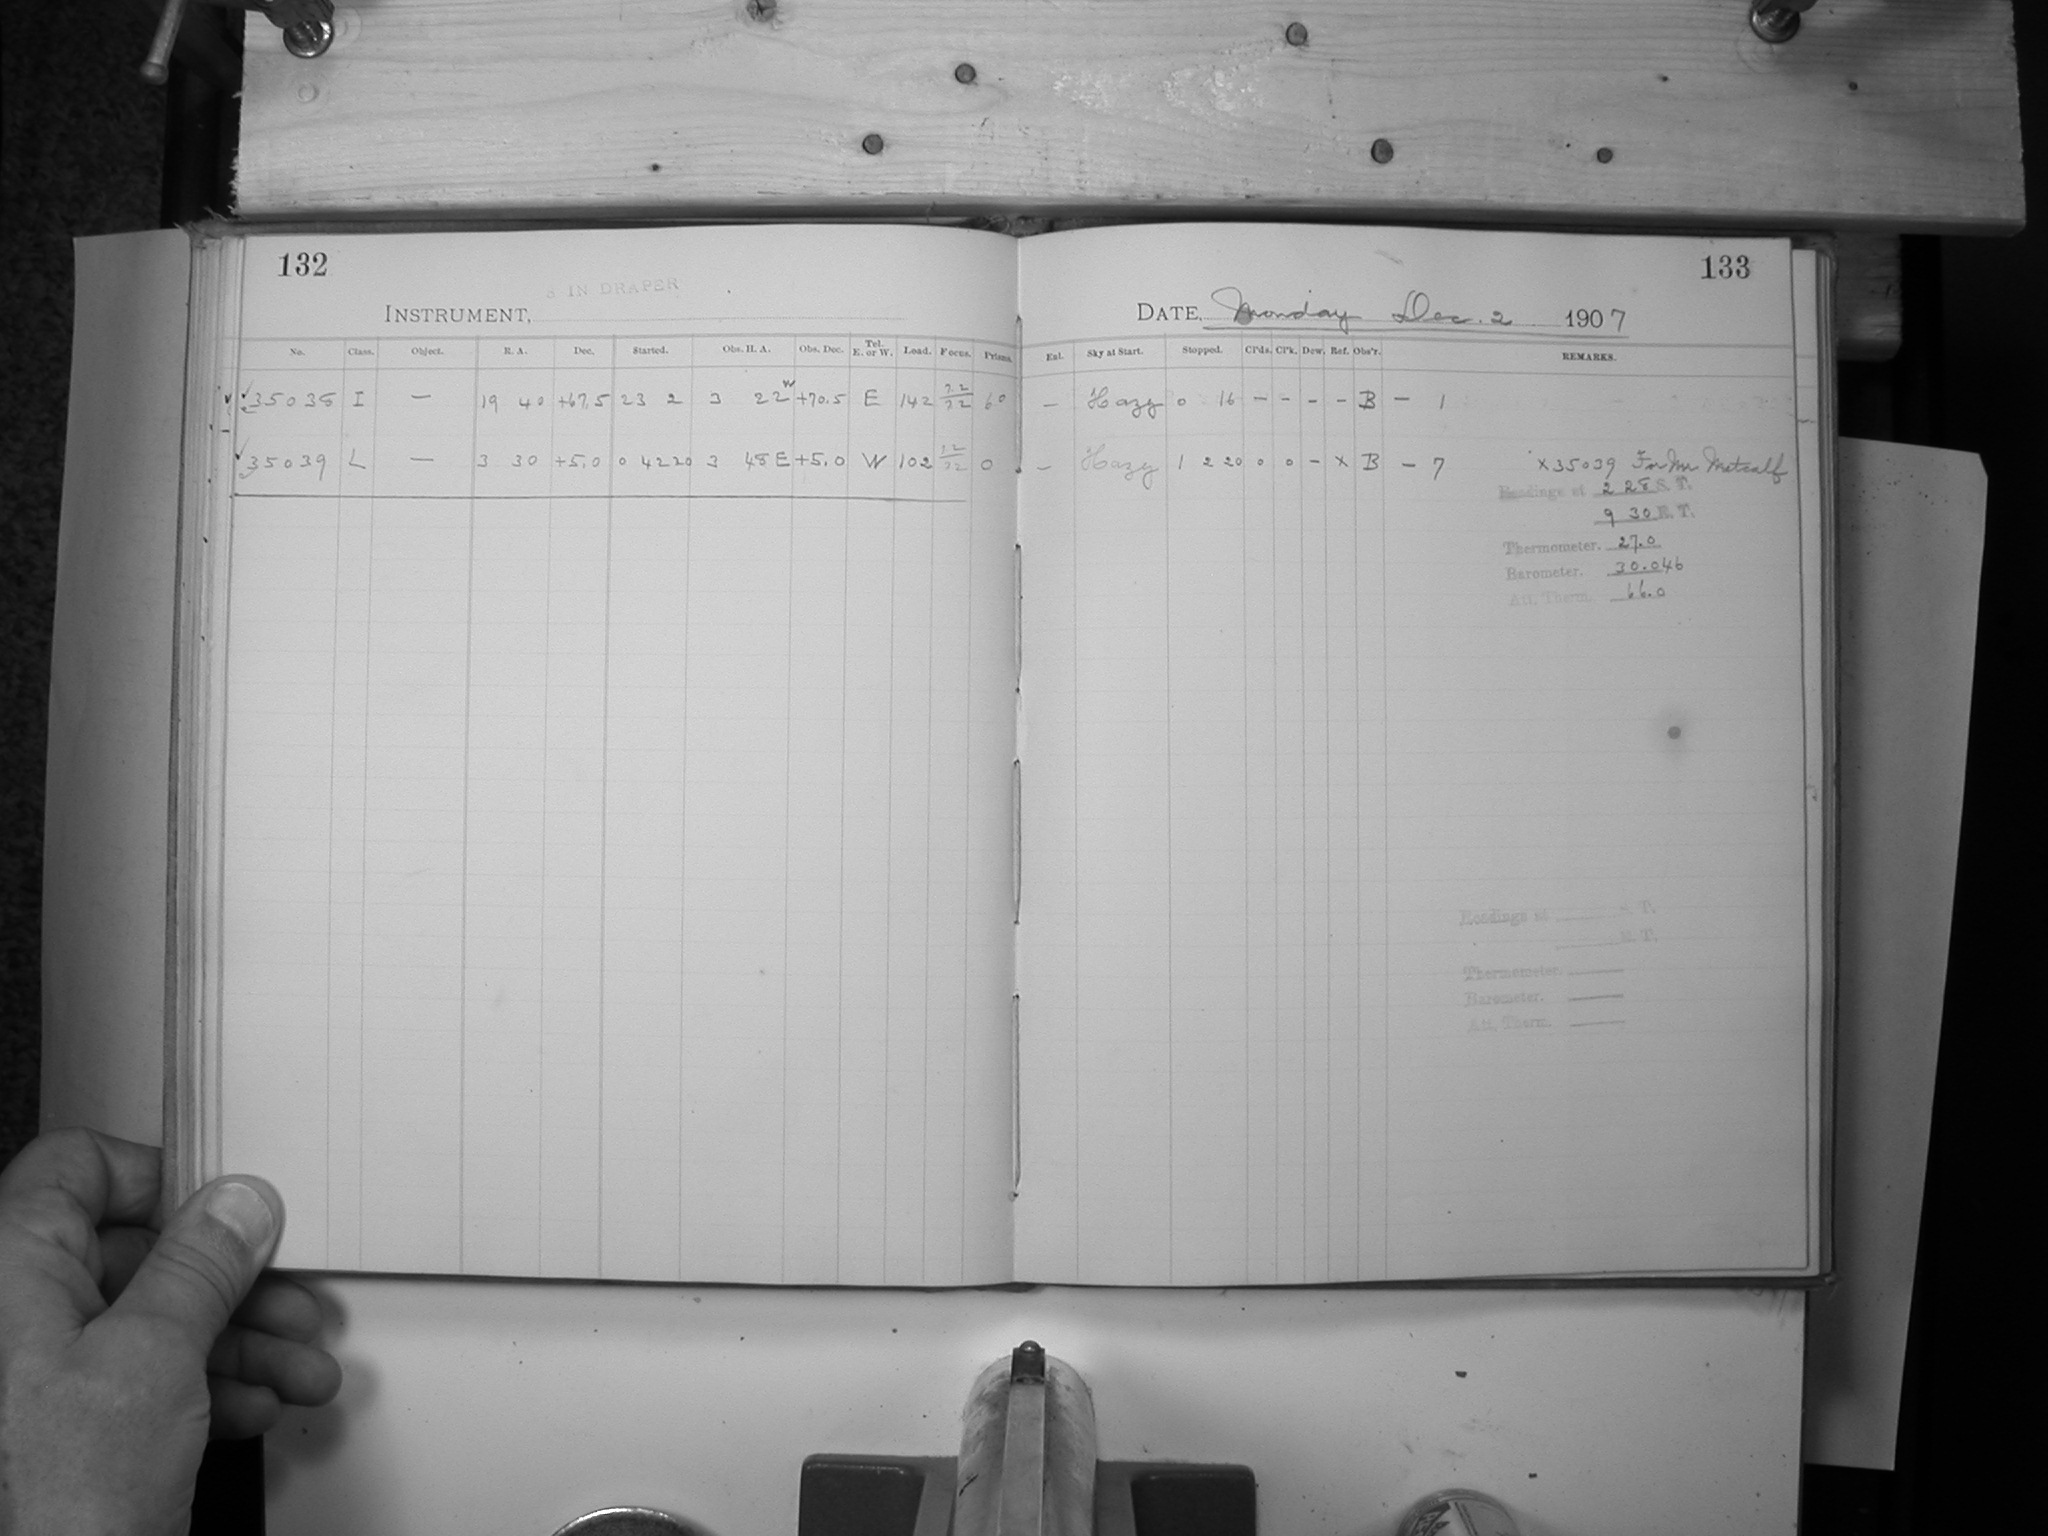 132
8 IN DRAPER
INSTRUMENT,
No. Class. Object. R. A. Dec. Started. Obs. H. A. Obs. Dec. Tel. E. or W. Load. Focus. Prisms.
35038 I — 19 40 +67.5 23 2 3 22 W +70.5 E 142 7.2/7.2 60
35039 L — 3 30 +5.0 0 42 20 3 48 E +5.0 W 102 7.2/7.2 0
133
DATE, Monday Dec. 2 1907
Ent. Sky at Start. Stopped. Cl'ds. Cl'k. Dew. Ref. Obs'r. REMARKS.
— Hazy 0 16 — — — — B — 1
— Hazy 1 2 20 0 0 — X B — 7 X35039 For Mr Metcalf
Readings at 2 28 S. T.
9 30 E. T.
Thermometer. 27.0
Barometer. 30.046
Att. Therm. 66.0
Readings at S. T.
E. T.
Thermometer.
Barometer.
Att. Therm.